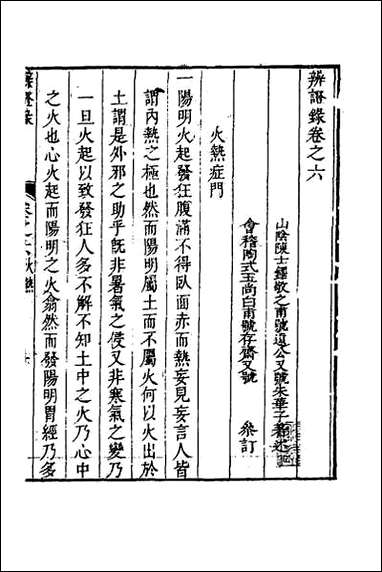 辨證錄卷之六
山陰陳士鐸敬之甫號遠公又號朱華子著述
會稽陶式玉尚白甫號存齋又號 參訂
火熱症門
一陽明火起發狂腹滿不得臥面赤而熱妄見妄言人皆
謂內熱之極也然而陽明屬土而不屬火何以火出於
土謂是外邪之助乎旣非暑氣之侵又非寒氣之變乃
一旦火起以致發狂人多不解不知土中之火乃心中
之火也心火起而陽明之火翕然而發陽明胃經乃多
辨證錄
卷之六火熱